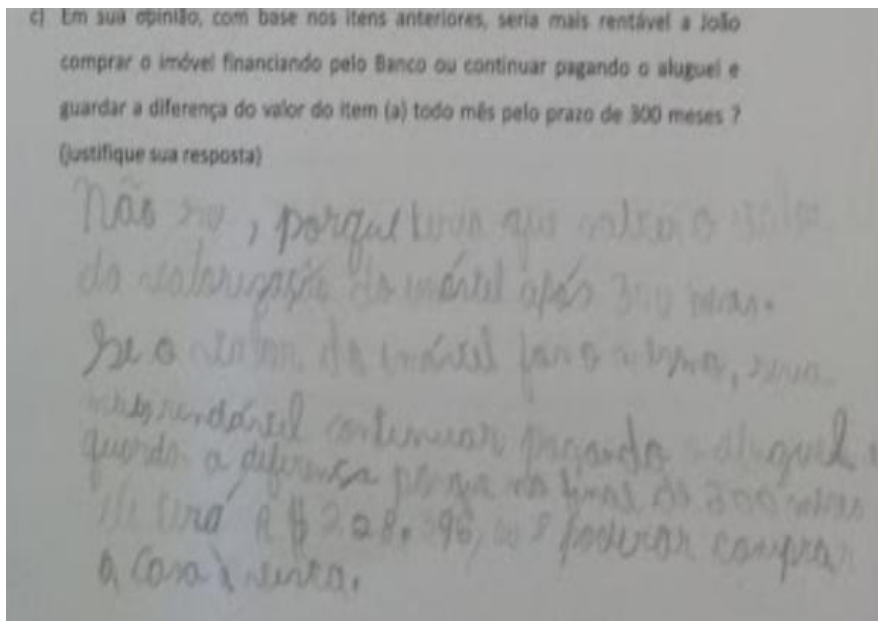 c) Em sua opinião, com base nos itens anteriores, seria mais rentável a João
comprar o imóvel financiando pelo Banco ou continuar pagando o aluguel e
guardar a diferença do valor do item (a) todo mês pelo prazo de 300 meses ?
(justifique sua resposta)
Não , porque que o
da valorização do imóvel após 300
Se o valor do imóvel o , seria
continuar pagando o aluguel e
guardar a diferença no final de 300 meses
ele terá R$ 228. 96, poderar comprar
a casa